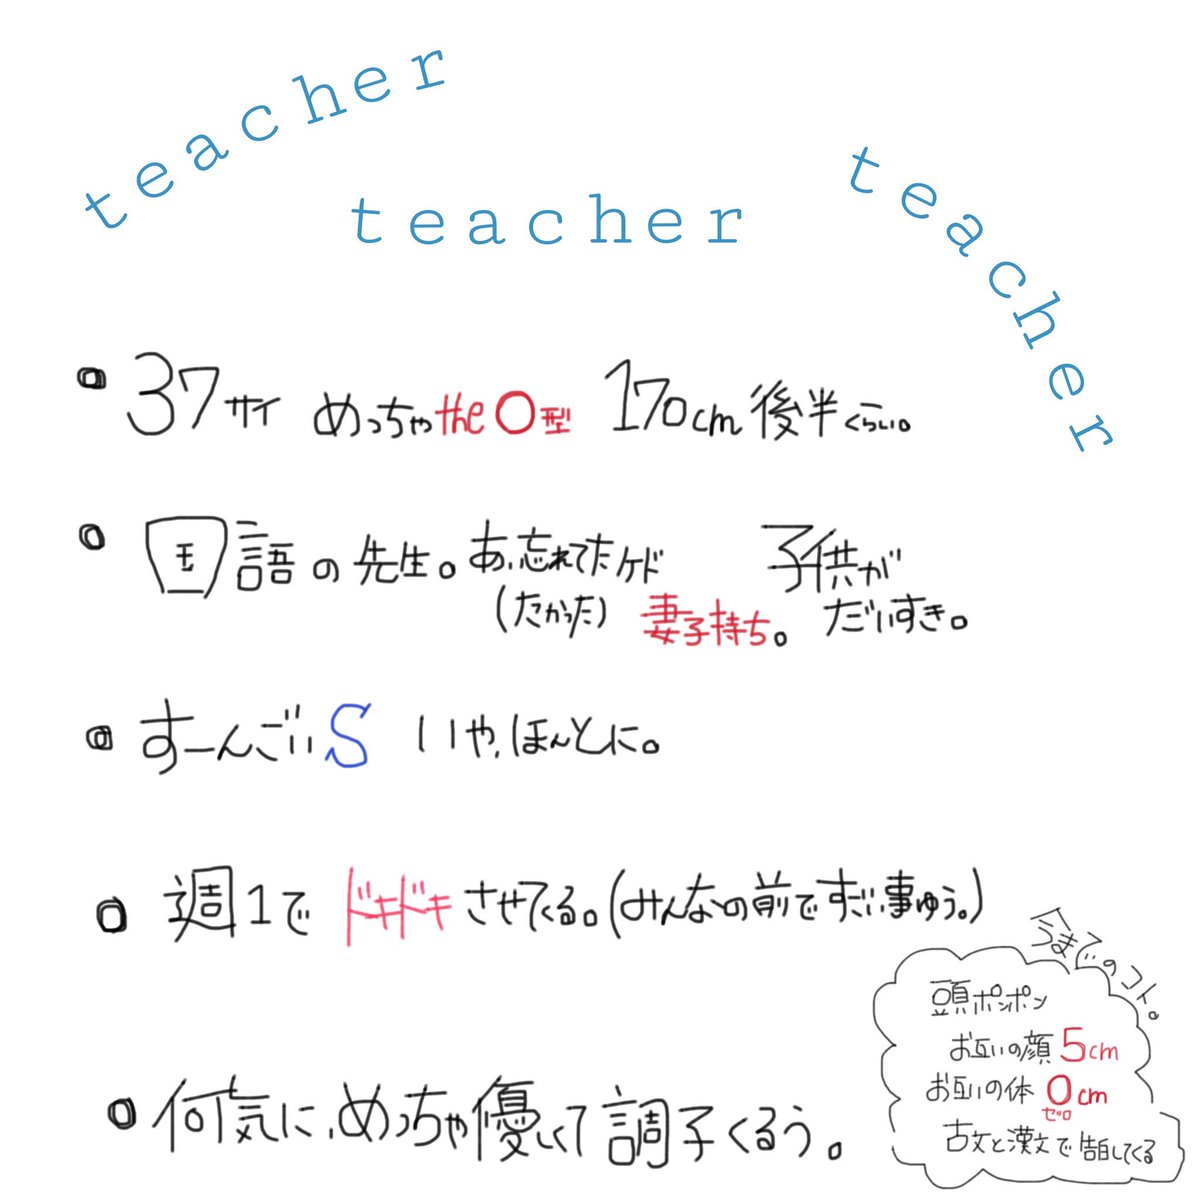 teacher
teacher
teacher
37サイ めっちゃtheO型 170cm後半くらい。
国語の先生。あ、忘れてたケド 子供が
(たかった) 妻子持ち。 だいすき。
すーんごいS いや、ほんとに。
週1でドキドキさせてくる。(みんなの前ですごい事ゆう。)
今までのコト。
頭ポンポン
お互いの顔5cm
お互いの体0cm
ゼロ
古文と漢文で告白してくる
何気に、めっちゃ優しくて調子くるう。